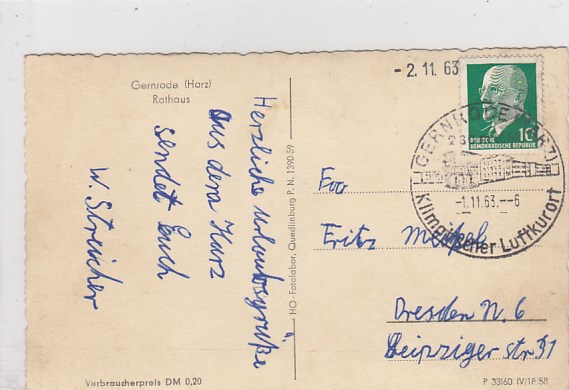 Gernrode (Harz)
Rathaus
Herzliche Urlaubsgrüße
aus dem Harz
sendet Euch
W. Streicher
Verbraucherpreis DM 0,20
HO-Fotolabor, Quedlinburg P. N. 1390 59
- 2. 11. 63
10
DEUTSCHE
DEMOKRATISCHE REPUBLIK
GERNRODE (HARZ)
-1.11.63.--6
Klimatischer Luftkurort
Fritz
Dresden N. 6
Leipziger str 31
P 33160 IV/18/58